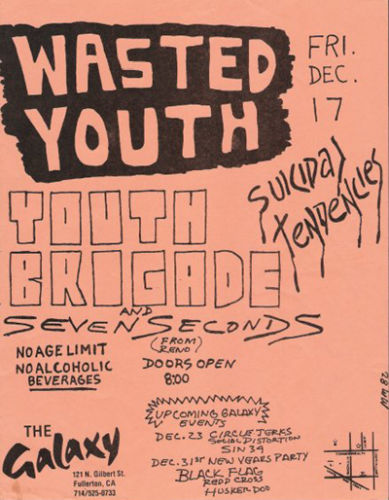 WASTED
YOUTH
FRI.
DEC.
17
SUICIDAL
TENDENCIES
YOUTH
BRIGADE
AND
SEVEN SECONDS
(FROM
RENO)
NO AGE LIMIT
NO ALCOHOLIC
BEVERAGES
DOORS OPEN
8:00
UPCOMING GALAXY
EVENTS
DEC. 23 CIRCLE JERKS
SOCIAL DISTORTION
SIN 34
DEC. 31ST NEW YEARS PARTY
BLACK FLAG
REDD CROSS
HUSKER DOO
THE
Galaxy
121 N. Gilbert St.
Fullerton, CA
714/525-0733
MM 82